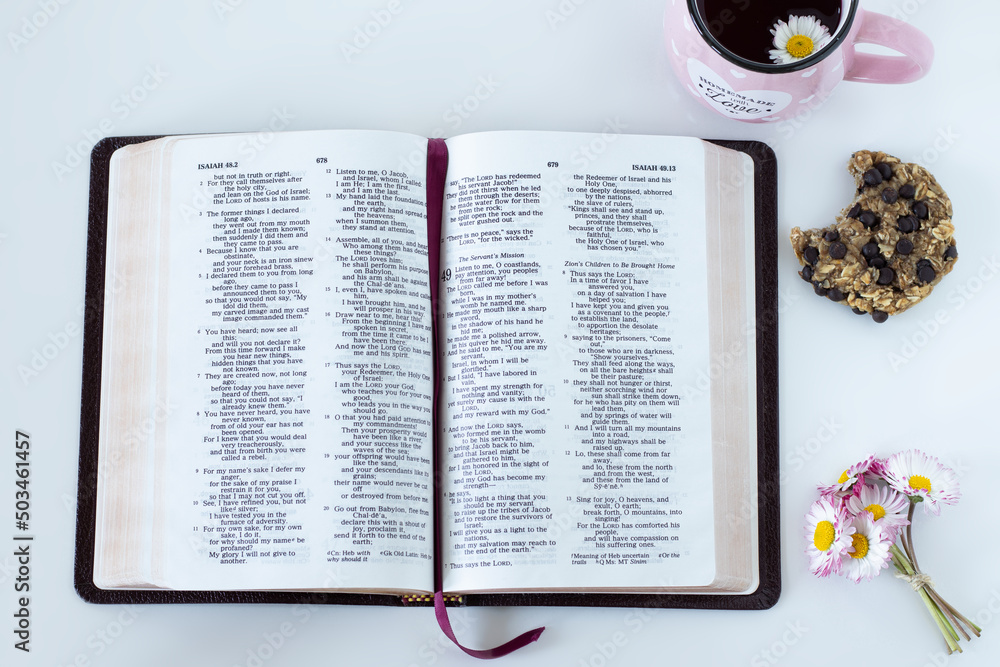 HOMEMADE
with
Love
ISAIAH 48.2
678
but not in truth or right.
2 For they call themselves after
the holy city,
and lean on the God of Israel;
the LORD of hosts is his name.
3 The former things I declared
long ago,
they went out from my mouth
and I made them known;
then suddenly I did them and
they came to pass.
4 Because I know that you are
obstinate,
and your neck is an iron sinew
and your forehead brass,
5 I declared them to you from long
ago,
before they came to pass I
announced them to you,
so that you would not say, "My
idol did them,
my carved image and my cast
image commanded them."
6 You have heard; now see all
this;
and will you not declare it?
From this time forward I make
you hear new things,
hidden things that you have
not known.
7 They are created now, not long
ago;
before today you have never
heard of them,
so that you could not say, "I
already knew them."
8 You have never heard, you have
never known,
from of old your ear has not
been opened.
For I knew that you would deal
very treacherously,
and that from birth you were
called a rebel.
9 For my name's sake I defer my
anger,
for the sake of my praise I
restrain it for you,
so that I may not cut you off.
10 See, I have refined you, but not
like silver;
I have tested you in the
furnace of adversity.
11 For my own sake, for my own
sake, I do it,
for why should my name be
profaned?
My glory I will not give to
another.
12 Listen to me, O Jacob,
and Israel, whom I called:
I am He; I am the first,
and I am the last.
13 My hand laid the foundation of
the earth,
and my right hand spread out
the heavens;
when I summon them,
they stand at attention.
14 Assemble, all of you, and hear!
Who among them has declared
these things?
The LORD loves him;
he shall perform his purpose
on Babylon,
and his arm shall be against
the Chaldeans.
15 I, even I, have spoken and called
him,
I have brought him, and he
will prosper in his way.
16 Draw near to me, hear this!
From the beginning I have not
spoken in secret,
from the time it came to be I
have been there.
And now the Lord GOD has sent
me and his spirit.
17 Thus says the LORD,
your Redeemer, the Holy One
of Israel:
I am the LORD your God,
who teaches you for your own
good,
who leads you in the way you
should go.
18 O that you had paid attention to
my commandments!
Then your prosperity would
have been like a river,
and your success like the
waves of the sea;
19 your offspring would have been
like the sand,
and your descendants like its
grains;
their name would never be cut
off
or destroyed from before me.
20 Go out from Babylon, flee from
Chal-dē´a,
declare this with a shout of
joy, proclaim it,
send it forth to the end of the
earth;
Cn: Heb with
Gk Old Latin: Heb
why should it
679
ISAIAH 49.13
say, "The LORD has redeemed
his servant Jacob!"
They did not thirst when he led
them through the deserts;
he made water flow for them
from the rock;
he split open the rock and the
water gushed out.
"There is no peace," says the
LORD, "for the wicked."
The Servant's Mission
49
Listen to me, O coastlands,
pay attention, you peoples
from far away!
The LORD called me before I was
born,
while I was in my mother's
womb he named me.
He made my mouth like a sharp
sword,
in the shadow of his hand he
hid me;
he made me a polished arrow,
in his quiver he hid me away.
And he said to me, "You are my
servant,
Israel, in whom I will be
glorified."
But I said, "I have labored in
vain,
I have spent my strength for
nothing and vanity;
yet surely my cause is with the
LORD,
and my reward with my God."
And now the LORD says,
who formed me in the womb
to be his servant,
to bring Jacob back to him,
and that Israel might be
gathered to him,
for I am honored in the sight of
the LORD,
and my God has become my
strength—
he says,
"It is too light a thing that you
should be my servant
to raise up the tribes of Jacob
and to restore the survivors of
Israel;
I will give you as a light to the
nations,
that my salvation may reach to
the end of the earth."
Thus says the LORD,
the Redeemer of Israel and his
Holy One,
to one deeply despised, abhorred
by the nations,
the slave of rulers,
"Kings shall see and stand up,
princes, and they shall
prostrate themselves,
because of the LORD, who is
faithful,
the Holy One of Israel, who
has chosen you."
Zion's Children to Be Brought Home
8 Thus says the LORD:
In a time of favor I have
answered you,
on a day of salvation I have
helped you;
I have kept you and given you
as a covenant to the people,
to establish the land,
to apportion the desolate
heritages;
9 saying to the prisoners, "Come
out,"
to those who are in darkness,
"Show yourselves."
They shall feed along the ways,
on all the bare heights shall
be their pasture;
10 they shall not hunger or thirst,
neither scorching wind nor
sun shall strike them down,
for he who has pity on them will
lead them,
and by springs of water will
guide them.
11 And I will turn all my mountains
into a road,
and my highways shall be
raised up.
12 Lo, these shall come from far
away,
and lo, these from the north
and from the west,
and these from the land of
Sȳ-ē´nē.
13 Sing for joy, O heavens, and
exult, O earth;
break forth, O mountains, into
singing!
For the LORD has comforted his
people,
and will have compassion on
his suffering ones.
Meaning of Heb uncertain
Or the
trails
Q Ms: MT Sinim
Adobe Stock | #503461457